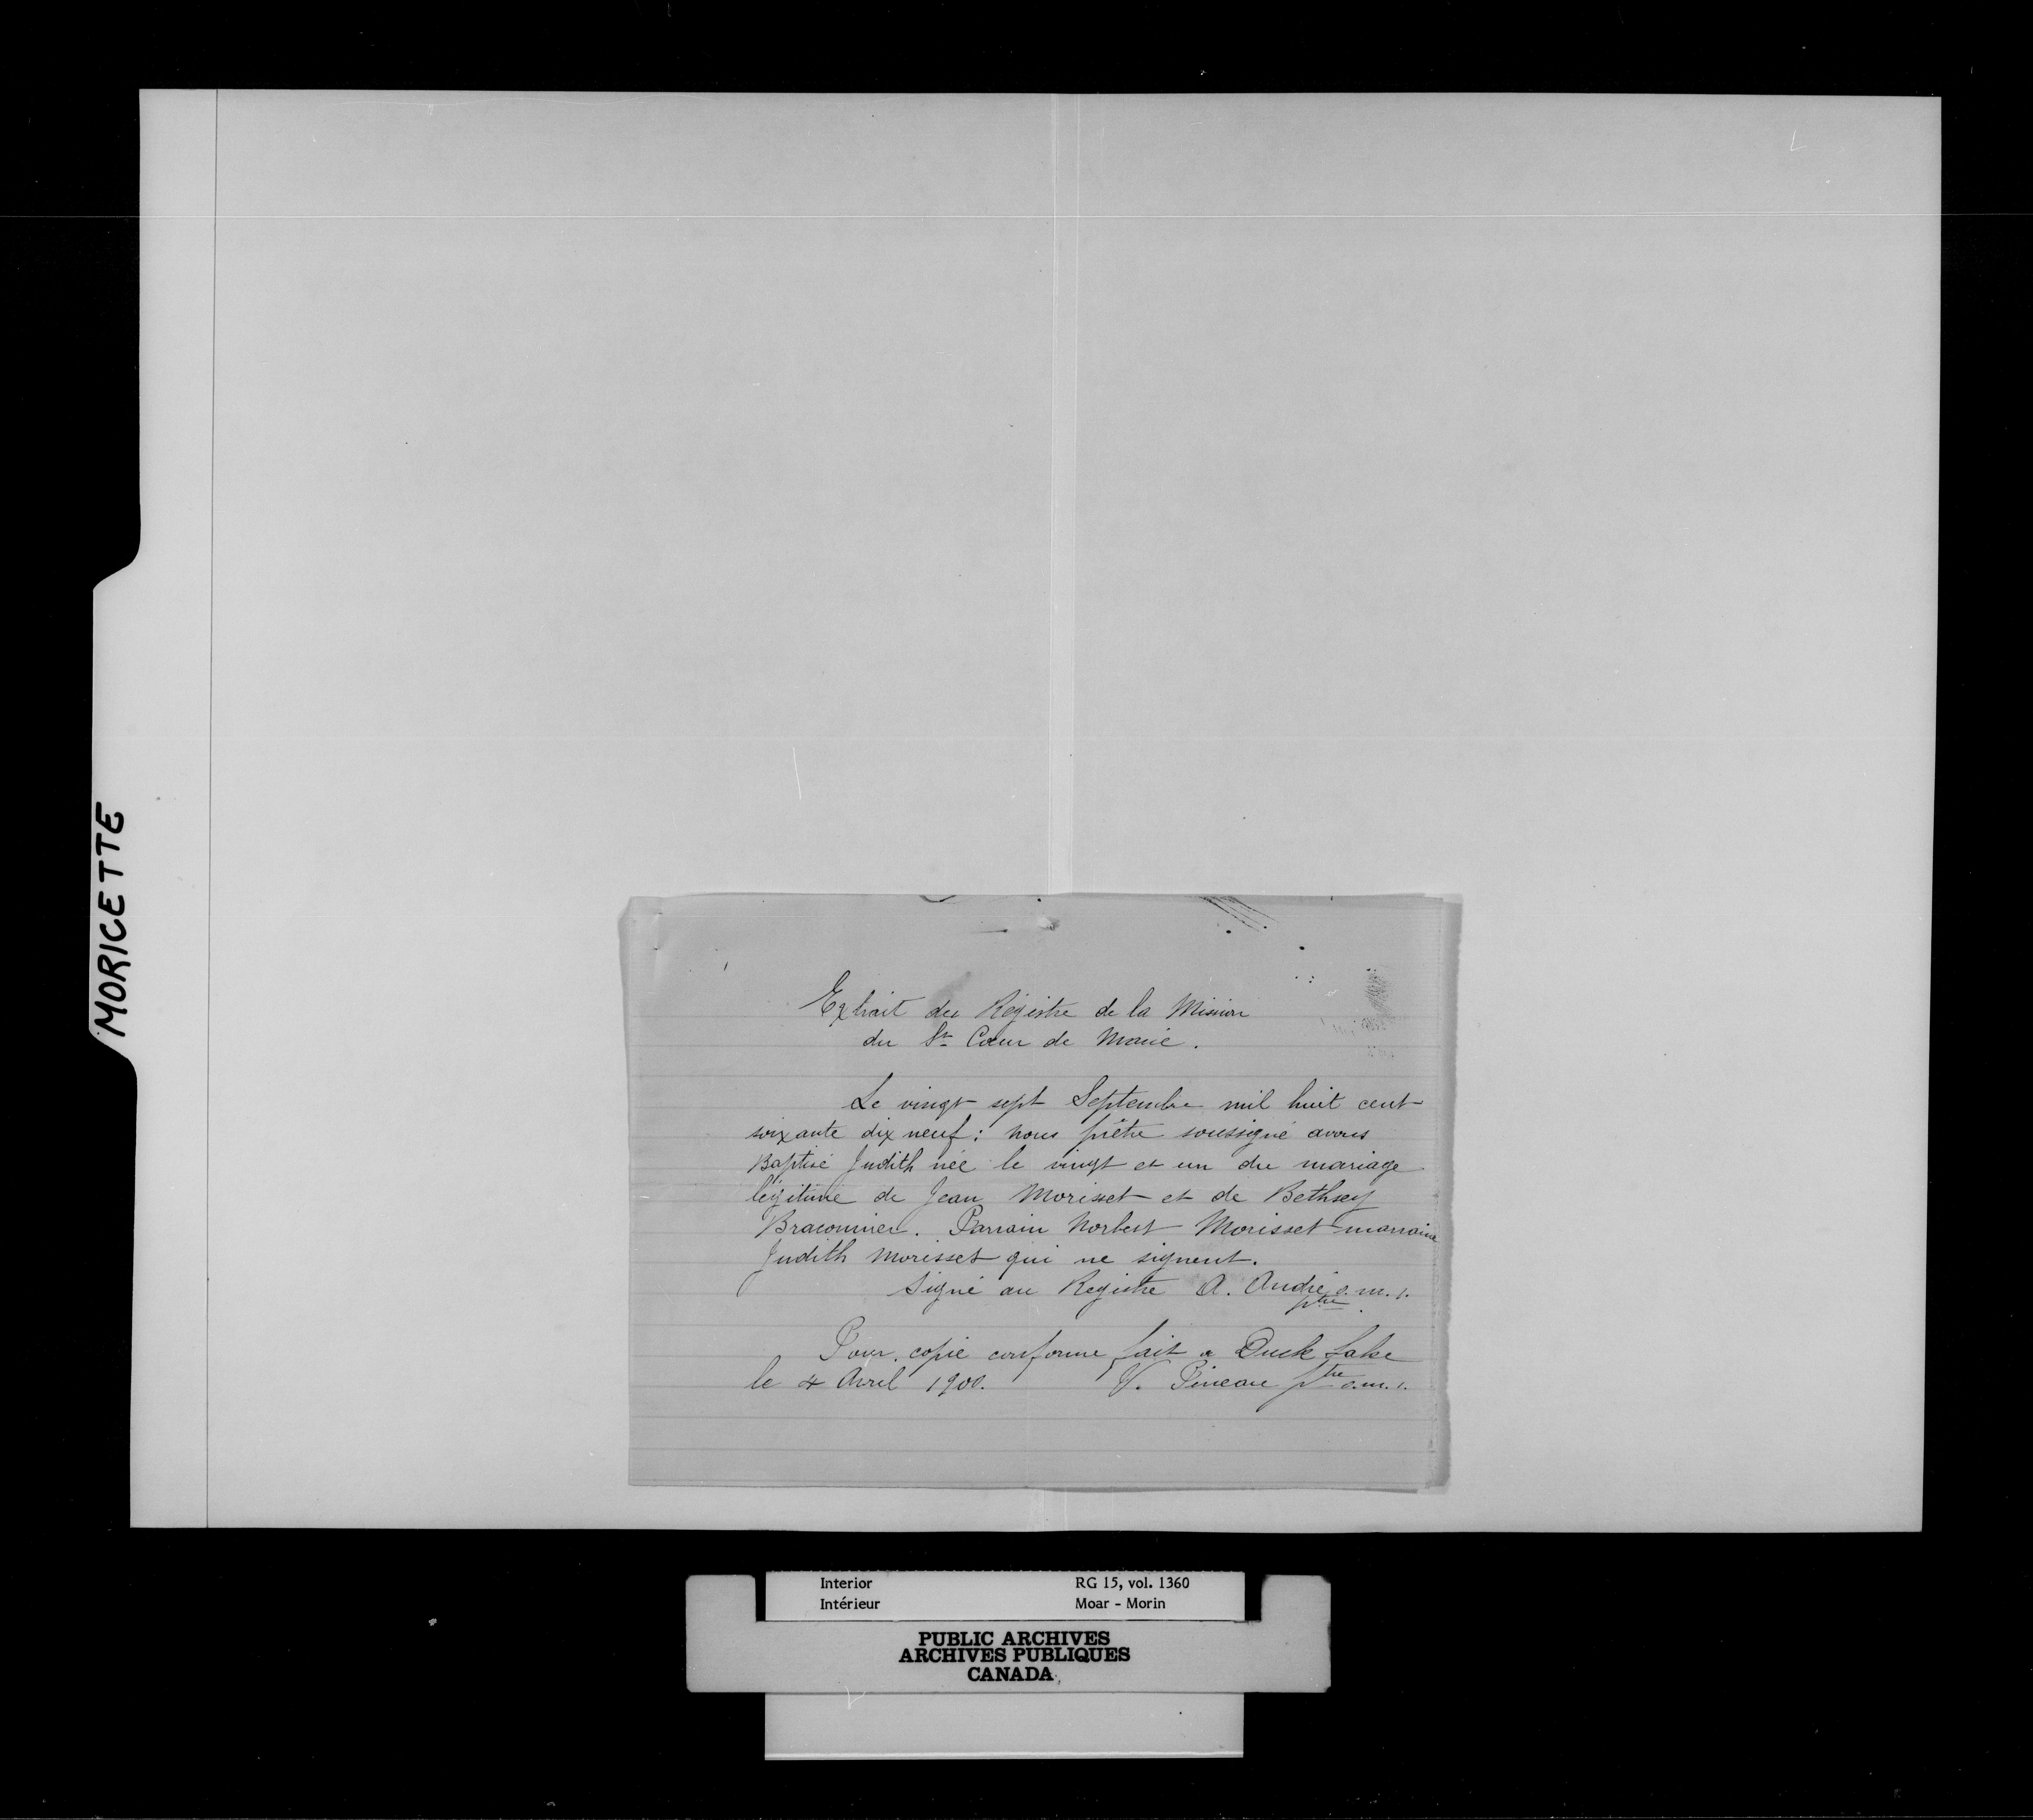 MORICETTE
Extrait du Régistre de la Mission
du St Cœur de Marie.
Le vingt sept Septembre mil huit cent
soixante dix neuf: nous prêtre soussigné avons
Baptisé Judith née le vingt et un du mariage
légitime de Jean Morisset et de Bethsey
Braconnier. Parrain Norbert Morisset marraine
Judith Morisset qui ne signent.
Signé au Registre A. André o.m.i.
ptre
Pour copie conforme fait a Duck Lake
le 4 Avril 1900. V. Pineau ptre o.m.i.
Interior RG 15, vol. 1360
Intérieur Moar - Morin
PUBLIC ARCHIVES
ARCHIVES PUBLIQUES
CANADA